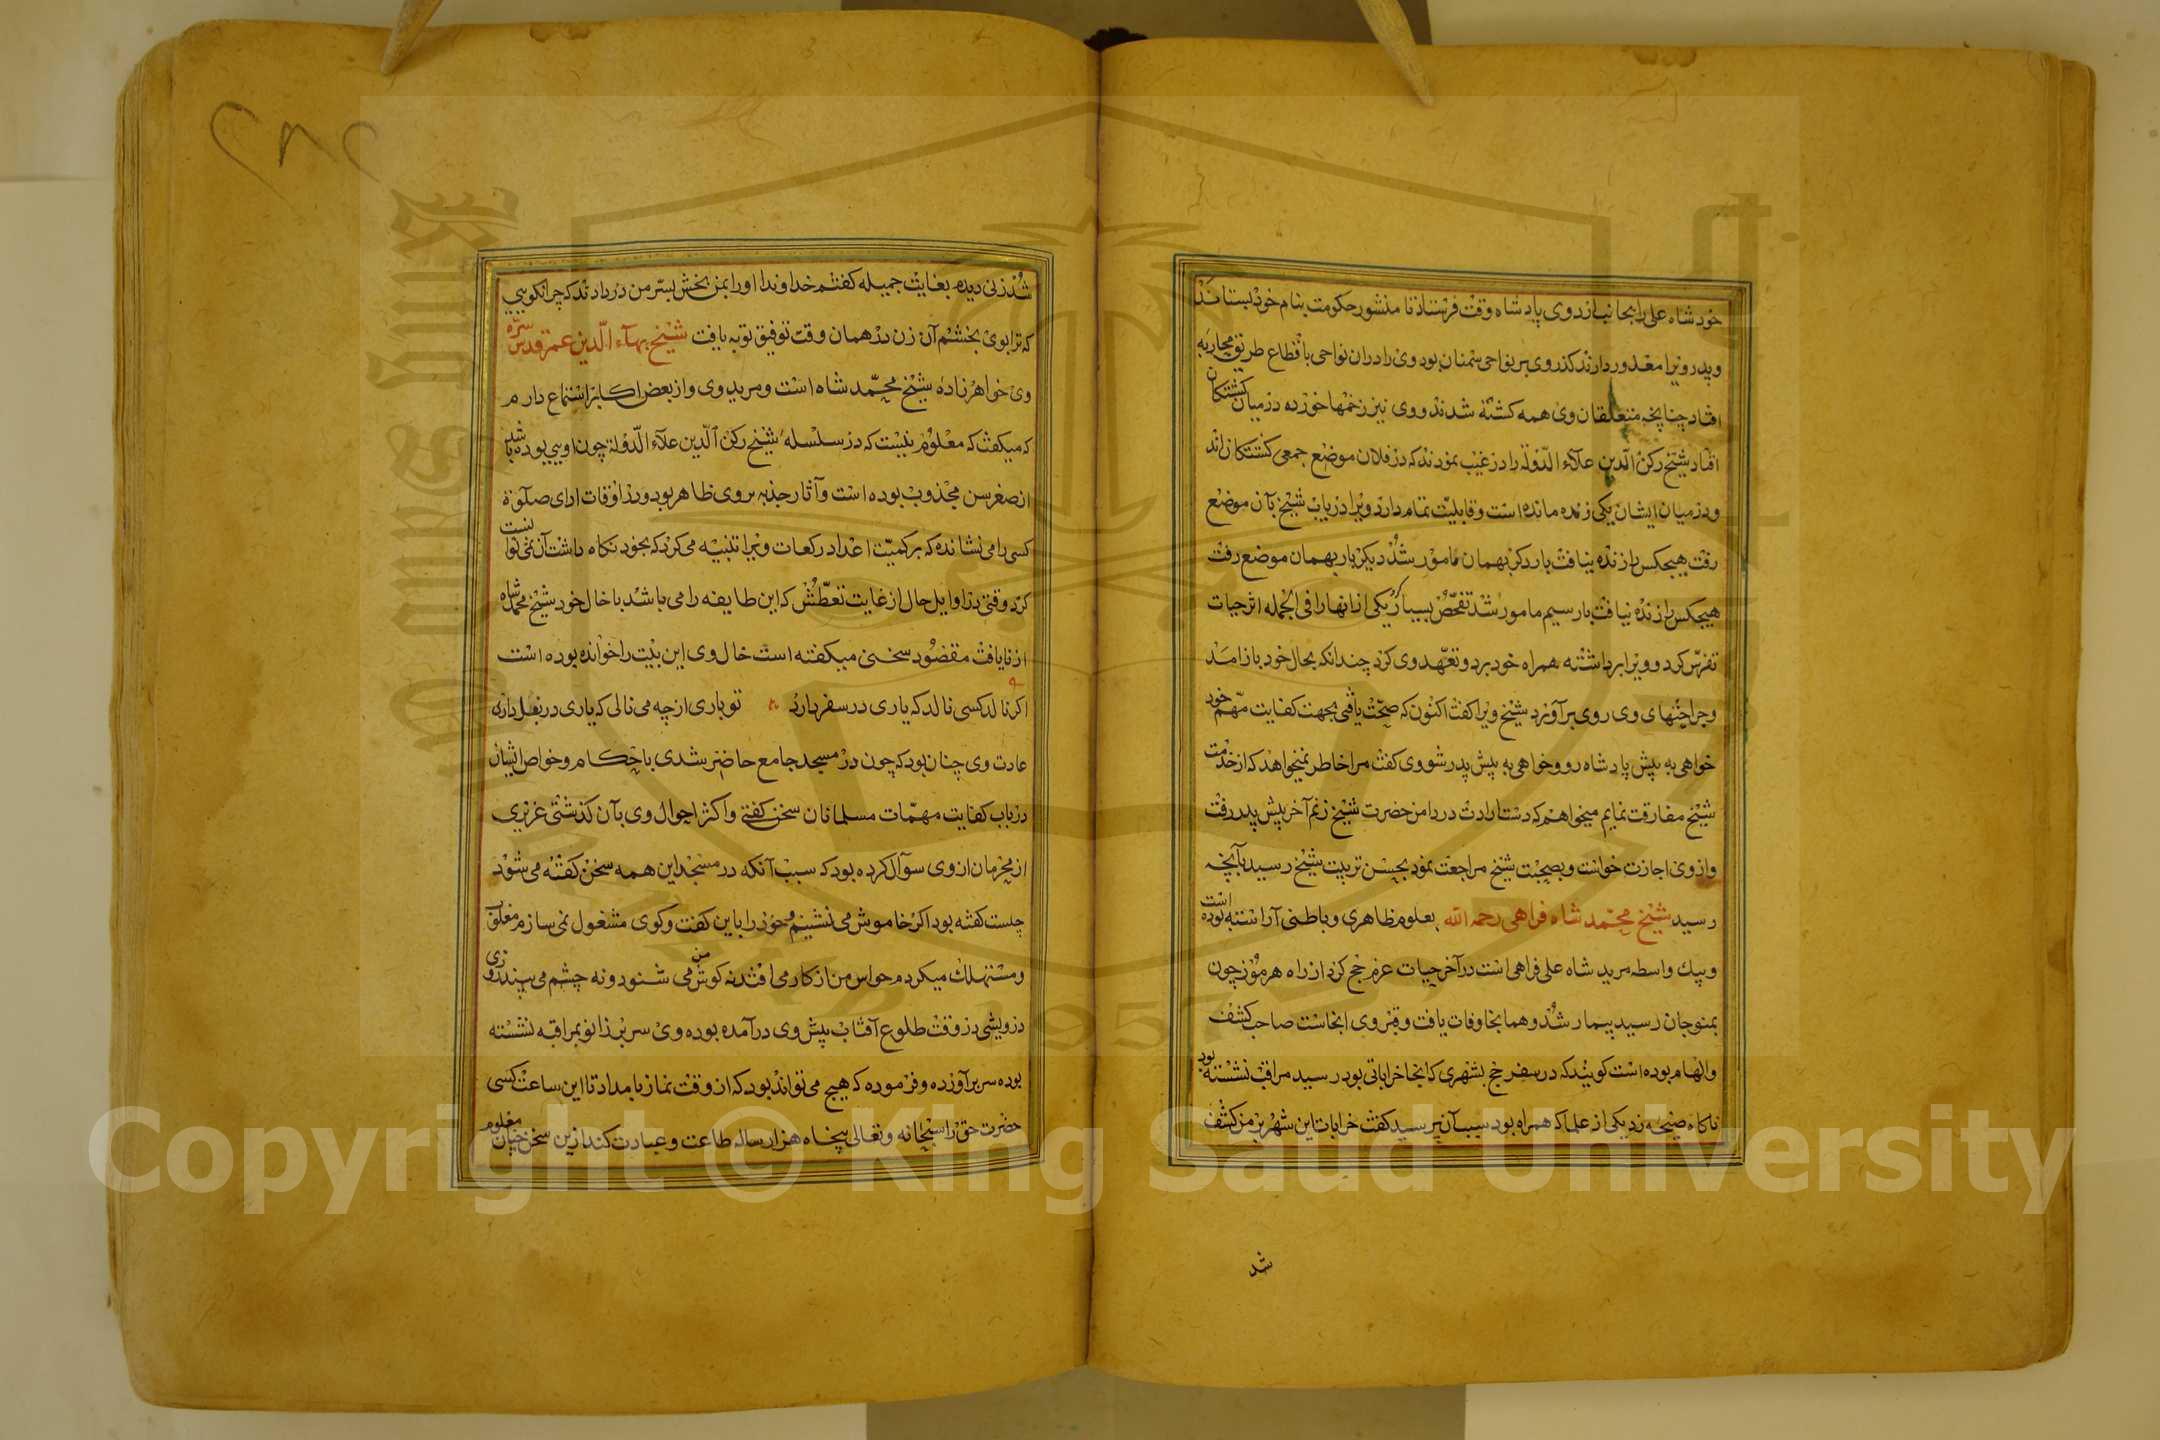 خود شاه علی را بجانب اردوی پادشاه وقت فرستاد تا منشور حکومت بنام خود بستاند
و پدر ویرا معذور دارند گذر وی بر نواحی سمنان بود وی را در آن نواحی با قطاع طریق محاربه
افتاد چنانچه متعلقان وی همه کشته شدند و وی نیز زخمها خورده در میان کشتکان
افتاد شیخ رکن الدین علاء الدوله را در غیب نمودند که در فلان موضع جمعی کشتکان اند
و در میان ایشان یکی زنده مانده است و قابلیت تمام دارد ویرا دریاب شیخ بآن موضع
رفت هیچکس را زنده نیافت بار دکر بهمان مامور شد دیکر بار بهمان موضع رفت
هیچکس را زنده نیافت بار سیم مامور شد تفحص بسیار کرد یکی از آنها را فی الجمله اثر حیات
تفرس کرد و ویرا برداشته همراه خود برد و تعهد وی کرد چندانکه بحال خود باز آمد
و جراحتهای وی روی برآورد شیخ ویرا کفت اکنون که صحت یافتی بجهت کفایت مهم خود
خواهی به پیش پادشاه رو و خواهی به پیش پدر شو وی کفت مرا خاطر نمیخواهد که از خدمت
شیخ مفارقت نمایم میخواهم که دست ارادت در دامن حضرت شیخ زنم آخر پیش پدر رفت
و از وی اجازت خواست و بصحبت شیخ مراجعت نمود بحسن تربیت شیخ رسید بآنچه
رسید شیخ محمد شاه فراهی رحمه الله بعلوم ظاهری و باطنی آراسته بوده است
و بیک واسطه مرید شاه علی فراهی است در آخر حیات عزم حج کرد از راه هرموز چون
بمنوجان رسید بیمار شد و هما نجا وفات یافت و قبر وی آنجاست صاحب کشف
و الهام بوده است کویند که در سفر حج بشهری که آنجا خراباتی بود رسید مراقب نشسته بود
ناکاه صیحه زد یکی از علما که همراه بود سبب آن پرسید کفت خرابات این شهر بر من کشف
شد
شد زنی دیدم بغایت جمیله کفتم خداوندا او را بمن بخش بسر من در دادند که چرا نکویی
که ترا بوی بخشم آن زن در همان وقت توفیق توبه یافت شیخ بهاء الدین عمر قدس سره
وی خواهر زاده شیخ محمد شاه است و مرید وی و از بعض اکابر استماع دارم
که میکفت که معلوم نیست که در سلسله شیخ رکن الدین علاء الدوله چون اویی بوده باشد
از صغر سن مجذوب بوده است و آثار جذبه بروی ظاهر بود و در اوقات ادای صلوة
کسی را می نشانده که بر کمیت اعداد رکعات ویرا تنبیه می کرد که بخود نکاه داشت آن نمی توانست
کرد وقتی در اوایل حال از غایت تعطش که این طایفه را می باشد با خال خود شیخ محمد شاه
از نایافت مقصود سخنی میکفته است خال وی این بیت را خوانده بوده است
اکر نالد کسی نالد که یاری در سفر دارد تو باری از چه می نالی که یاری در بغل داری
عادت وی چنان بود که چون در مسجد جامع حاضر شدی با حکام و خواص ایشان
در باب کفایت مهمات مسلمانان سخن کفتی و اکثر احوال وی بآن کذشتی عزیزی
از محرمان از وی سوآل کرده بود که سبب آنکه در مسجد این همه سخن کفته می شود
چیست کفته بود اکر خاموش می نشینم و خود را باین کفت وکوی مشغول نمی سازم مغلوب
و مستهلک میکردم حواس من از کار می افتد نه کوش من می شنود و نه چشم می بیند روزی
درویشی در وقت طلوع آفتاب پیش وی درآمده بوده وی سر بر زانو بمراقبه نشسته
بوده سر بر آورده و فرموده که هیچ می تواند بود که از وقت نماز بامداد تا این ساعت کسی
حضرت حق را سبحانه و تعالی پنجاه هزار ساله طاعت و عبادت کند ازین سخن چنان معلوم
Copyright © King Saud University